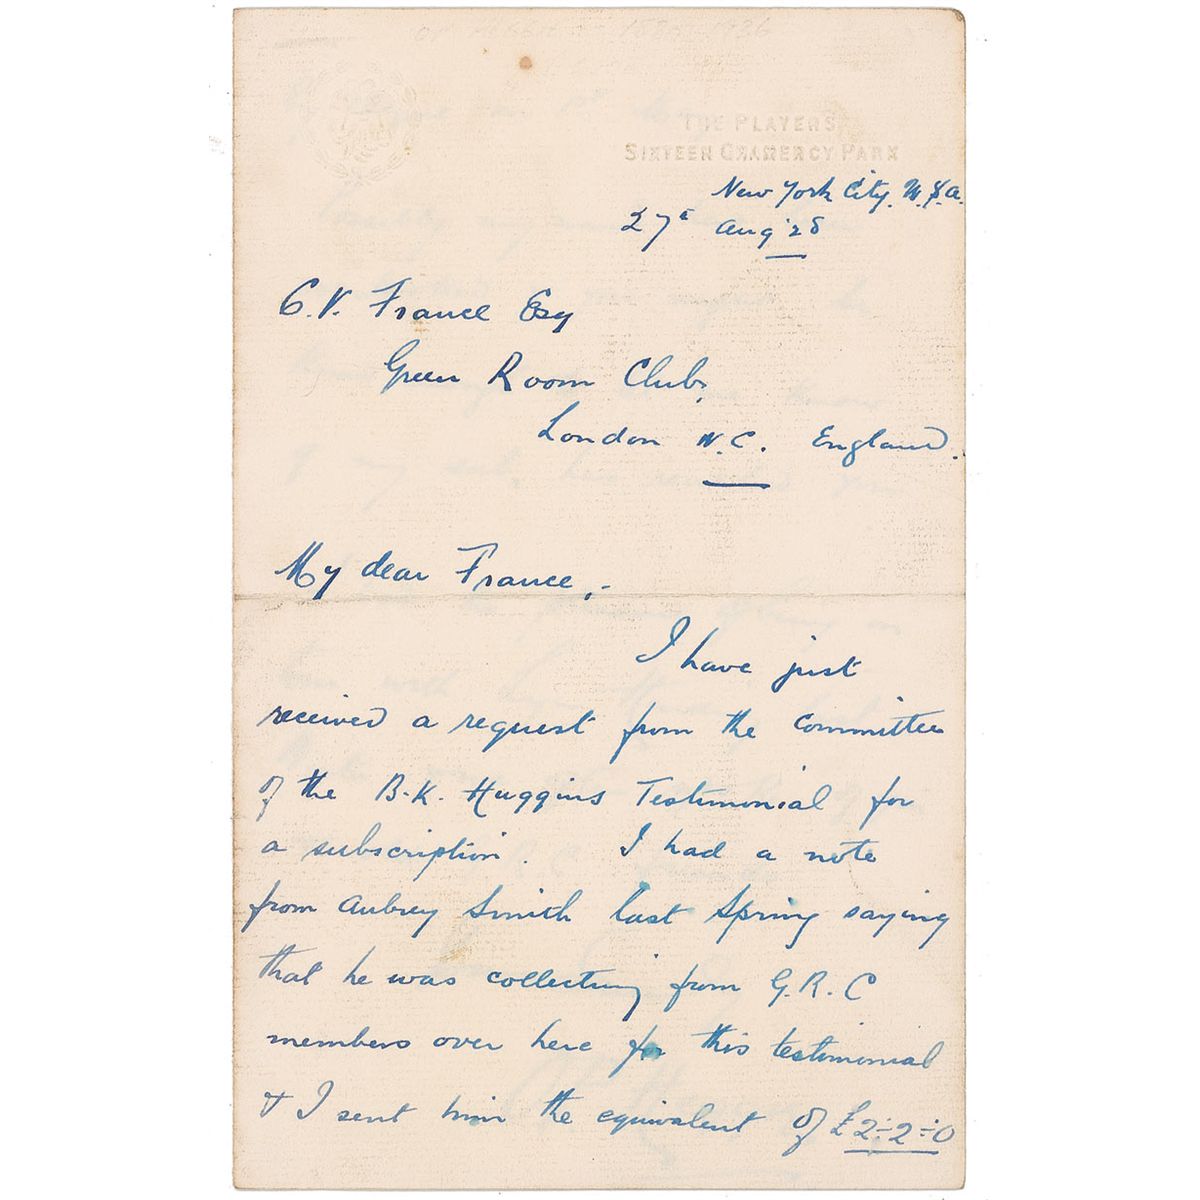 THE PLAYERS
SIXTEEN GRAMERCY PARK
New York City. U.S.A.
27th Aug '28
C.V. France Esq
Green Room Club,
London W.C. England.
My dear France,-
I have just
received a request from the committee
of the B.K. Huggins Testimonial for
a subscription. I had a note
from Aubrey Smith last Spring saying
that he was collecting from G.R.C
members over here for this testimonial
& I sent him the equivalent of £2-2-0